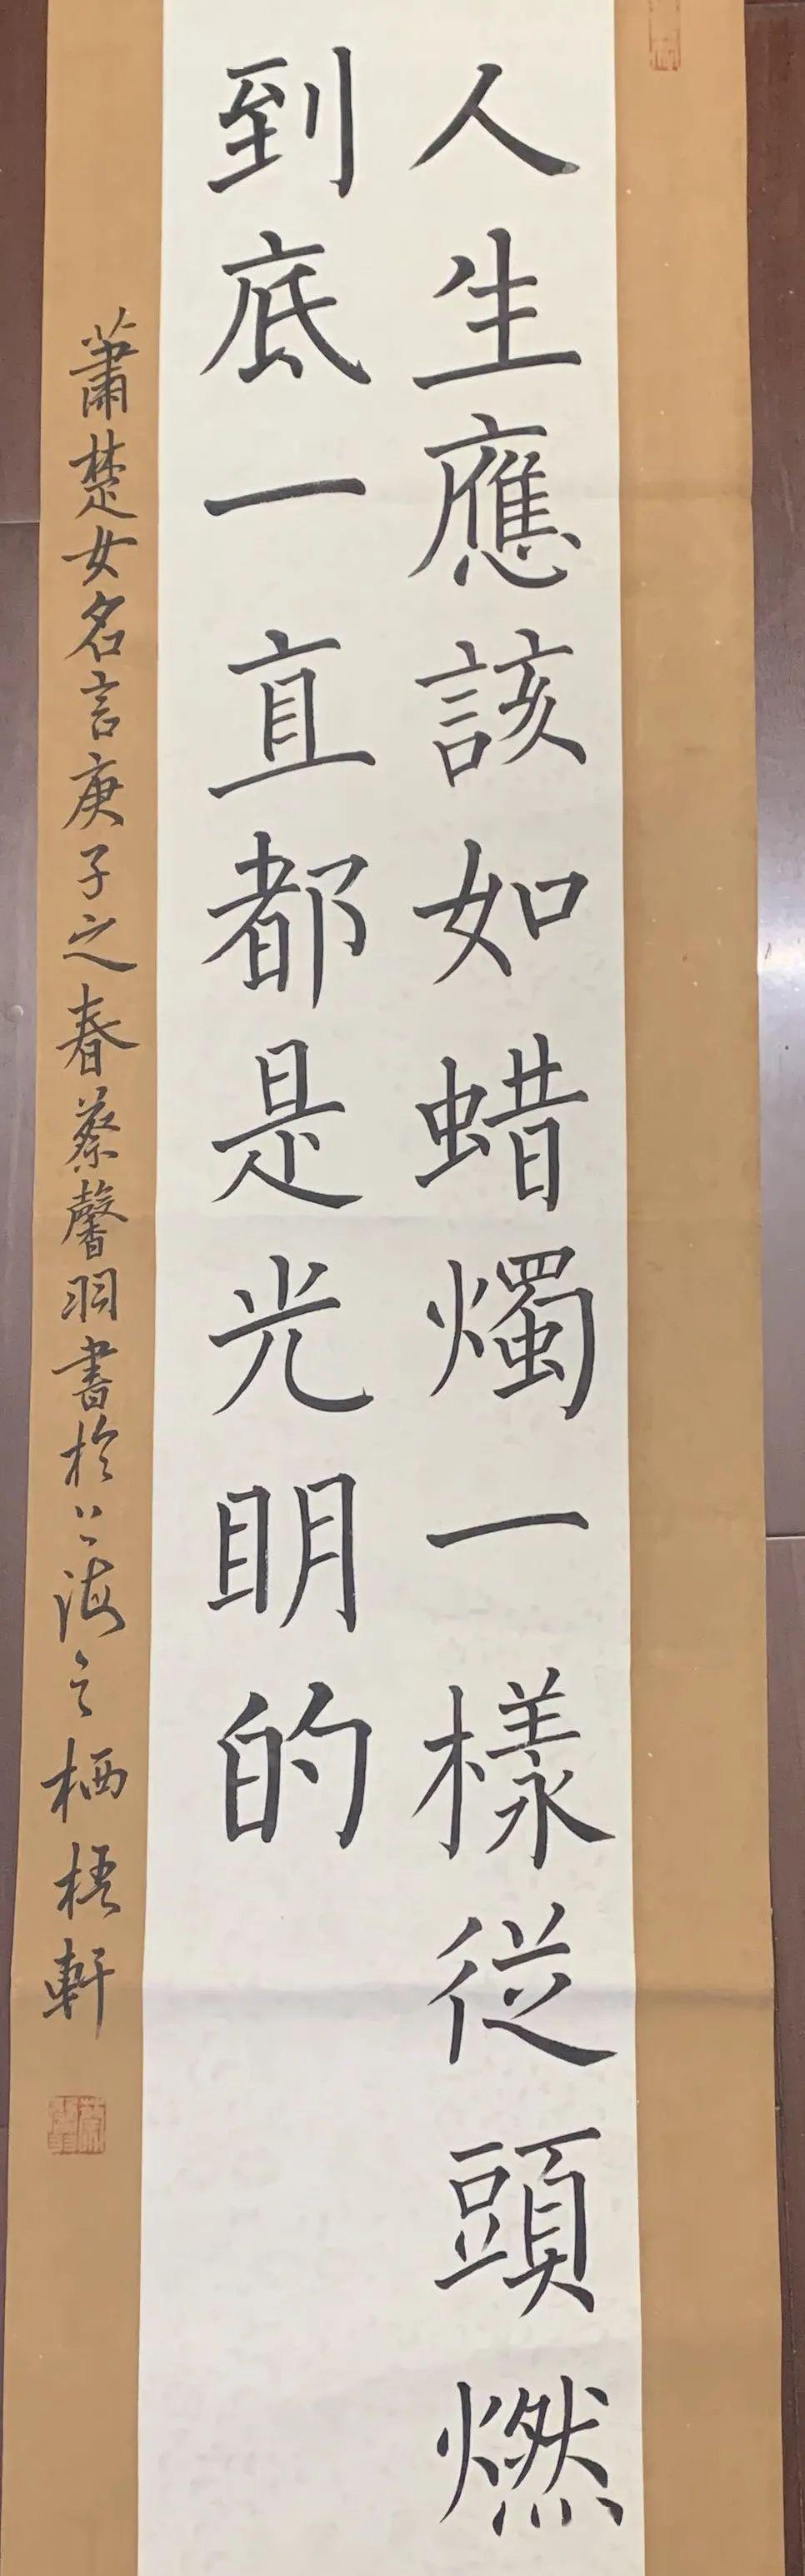 人生應該如蜡燭一樣從頭燃
到底一直都是光明的
蕭楚女名言庚子之春蔡馨羽書於上海之栖梧軒